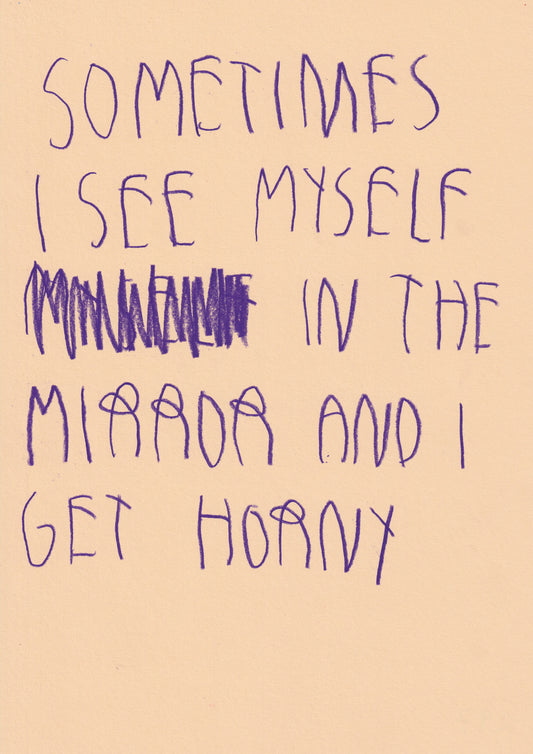 SOMETIMES
I SEE MYSELF
IN THE
MIRROR AND I
GET HORNY